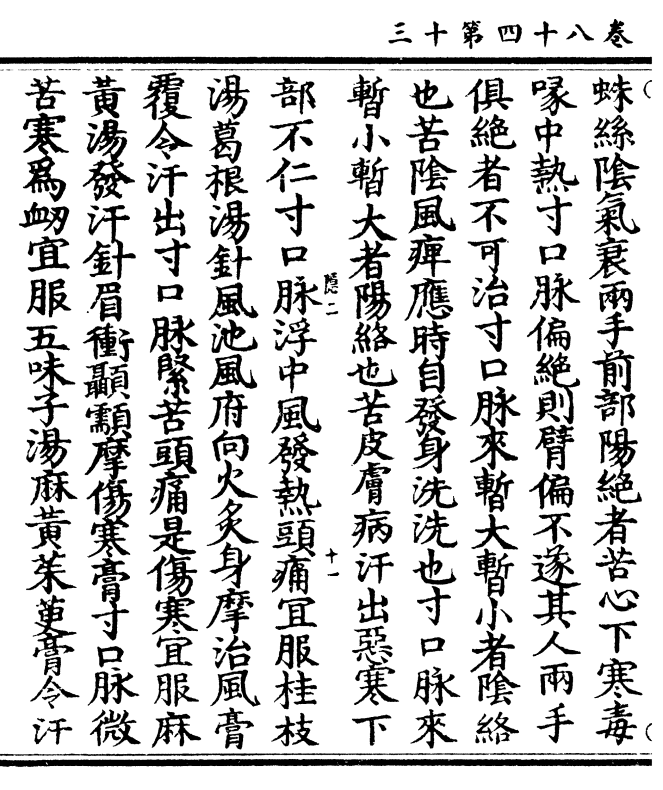 卷八十四第十三
蛛絲陰氣衰兩手前部陽絕者苦心下寒毒
喙中熱寸口脉偏絕則臂偏不遂其人兩手
俱絕者不可治寸口脉來暫大暫小者陰絡
也苦陰風痺應時自發身洗洗也寸口脉來
暫小暫大者陽絡也苦皮膚病汗出惡寒下
部不仁寸口脉浮中風發熱頭痛宜服桂枝
隱二
十一
湯葛根湯針風池風府向火炙身摩治風膏
覆令汗出寸口脉緊苦頭痛是傷寒宜服麻
黃湯發汗針眉衝顳顬摩傷寒膏寸口脉微
苦寒為衂宜服五味子湯麻黃茱萸膏令汗